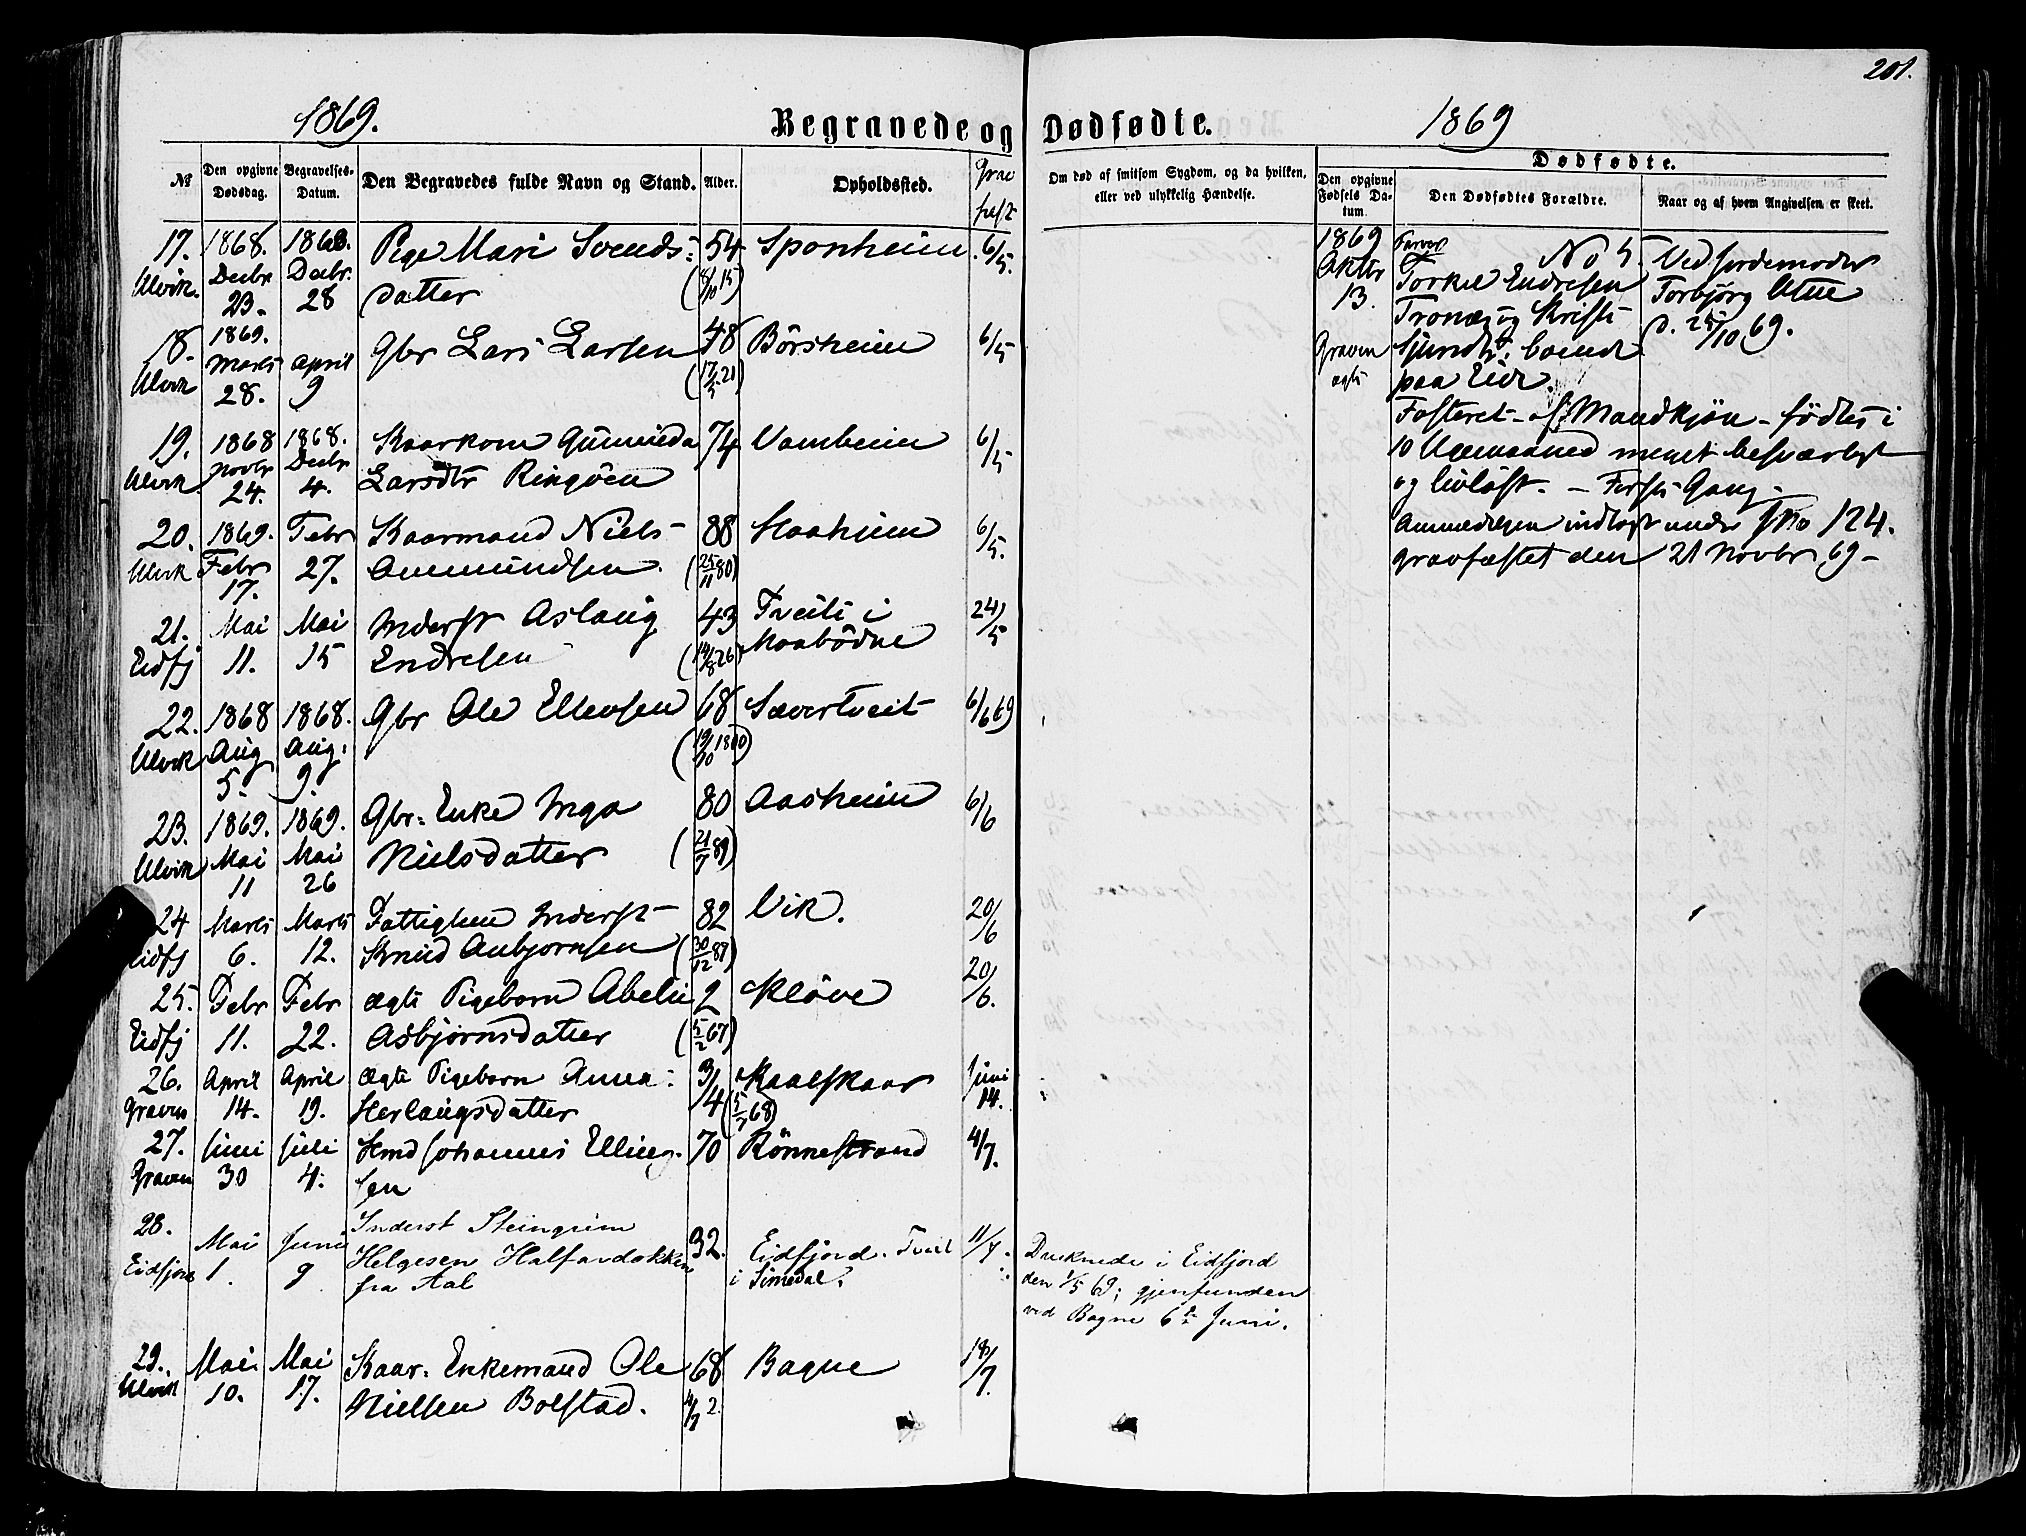 201.
1869.
Begravede og Dødfødte.
1869
№
Den opgivne Dødsdag.
Begravelses-Datum.
Den Begravedes fulde Navn og Stand.
Alder.
Opholdssted.
Grav
fæst
Om død af smitsom Sygdom, og da hvilken,
eller ved ulykkelig Hændelse.
Dødfødte.
Den opgivne Fødsels Datum.
Den Dødfødtes Forældre.
Naar og af hvem Angivelsen er skeet.
17. 1868. 1868. Pige Mari Svends- 54 Sponheim 6/5.
Ulvik. Decbr 23. Decbr. 28 datter (8/10 15)
18. 1869. Gbr Lars Larsen 48 Börsheim 6/5
Ulvik Marts 28. April 9 (17/5 21)
19. 1868 1868. Kaarkone Gunnilda 74 Vambeim 6/5
Ulvik Novbr 24. Decbr 4. Larsdtr Ringöen
20. 1869. Febr Kaarmand Niels 88 Haaheim 6/5.
Ulvik Febr 17. 27. Ammundsen (25/11 80)
21. Mai Mai Inderst Aslaug 43 Tveiti i 24/5
Eidfj 11. 15 Endresen (14/8 26) Maabödne
22. 1868 1868. Gbr Ole Ellevsen 68 Sævertveit 6/6 69
Ulvik Aug 5. Aug. 9. (19/10 1800)
23. 1869. 1869. Gbr: Enke Inga 80 Aasheim 6/6
Ulvik Mai 11 Mai 26 Nielsdatter (21/7 89)
24 Marts Marts Fattiglem Inderst 82 Vik. 20/6
Eidfj 6. 12. Knud Anbjörnsen (30/12 87)
25. Febr Febr ægte Pigebarn Abelu 2 Klöve 20/6.
Eidfj 11. 22. Asbjörnsdatter (5/2 67)
26. April April ægte Pigebarn Anna 3/4 Maalskaar Juni 14.
Graven 14. 19. Herlaugsdatter (5/7 68)
27. Juni Juli Hmd Johannes Elling- 70 Rönnestrand 4/7.
Graven 30 4. sen
28. Mai Juni Inderst Steingrim 32. Eidfjord. Tveit 11/7.
Eidfjord 1. 9 Helgesen Halfardokken i Simedal.
fra Aal
Druknede i Eidfjord
den 1/5 69; gjenfunden
ved Bagne 6te Juni.
29. Mai Mai Kaar. Enkemand Ole 68 Bagne 18/7.
Ulvik 10. 17. Nielsen Bolstad.
1869 Farver No 5. Ved Jordemoder
Oktbr Torkel Endresen Torbjörg Utne
13. Tronæs og Kristi d. 25/10 69.
Graven Sjurdtr. boende
ægte paa Eide.
Fosteret af Mandkjön - födtes i
10 Uge­maaned meget besværligt
og livlöst. - Förste Gang.
Anmeldelsen indlagt under No 124.
gravfæstet den 21 Novbr 69 -